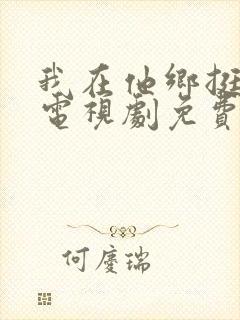 我在他鄉挺
電視劇免費
何慶瑞